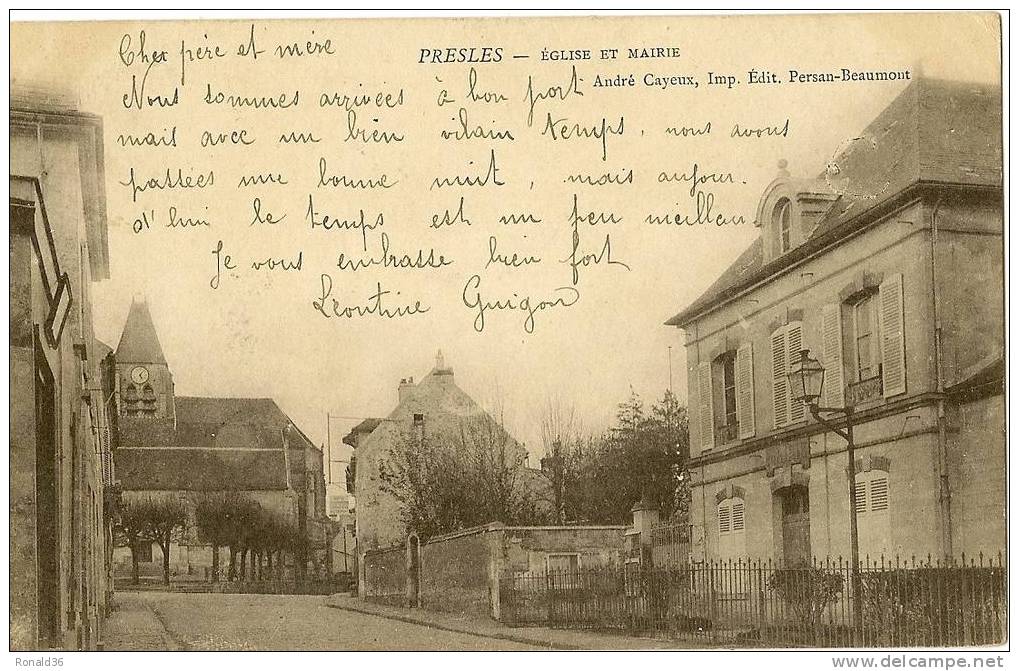 Cher père et mère
PRESLES — ÉGLISE ET MAIRIE
André Cayeux, Imp. Édit. Persan-Beaumont
Nous sommes arrivées à bon port
mais avec un bien vilain temps, nous avous
passées une bonne nuit, mais aujour.
d'hui le temps est un peu meilleur
Je vous embrasse bien fort
Léontine Guigon
Ronald36
www.delcampe.net